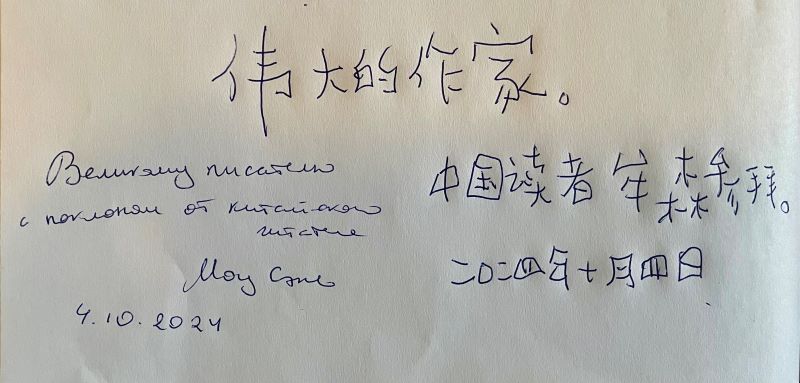 伟大的作家。
Великому писателю
с поклоном от китайского
читателя
Моу Сэнь
4.10.2024
中国读者 牟森参拜。
二〇二四年十月四日